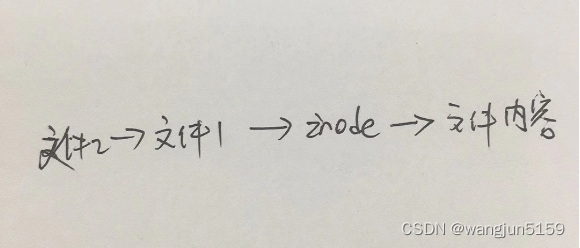 文件2→文件1→inode→文件内容
CSDN @wangjun5159